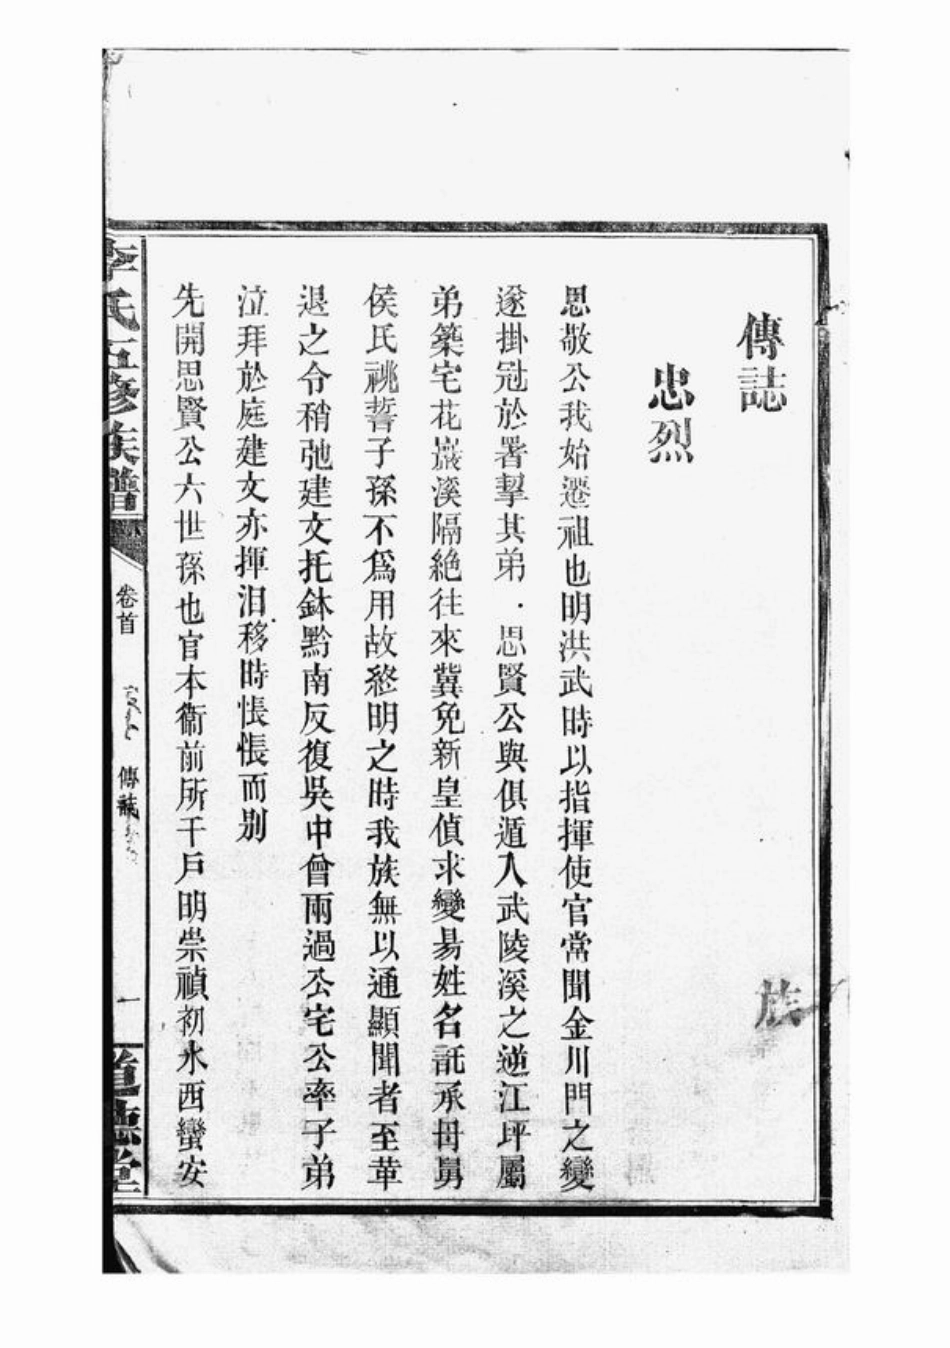 傳誌
族
忠烈
思敬公我始遷祖也明洪武時以指揮使官常聞金川門之變
遂掛冠於署挈其弟．思賢公與俱遁入武陵溪之逆江坪屬
弟築宅花巖溪隔絶往來冀免新皇偵求變易姓名託承母舅
侯氏祧誓子孫不爲用故終明之時我族無以通顯聞者至革
退之令稍弛建文托鉢黔南反復吳中曾兩過公宅公率子弟
泣拜於庭建文亦揮泪移時悵悵而别
先開思賢公六世孫也官本衞前所千戶明崇禎初水西蠻安
李氏五修族譜
卷首
傳誌
一
道德堂